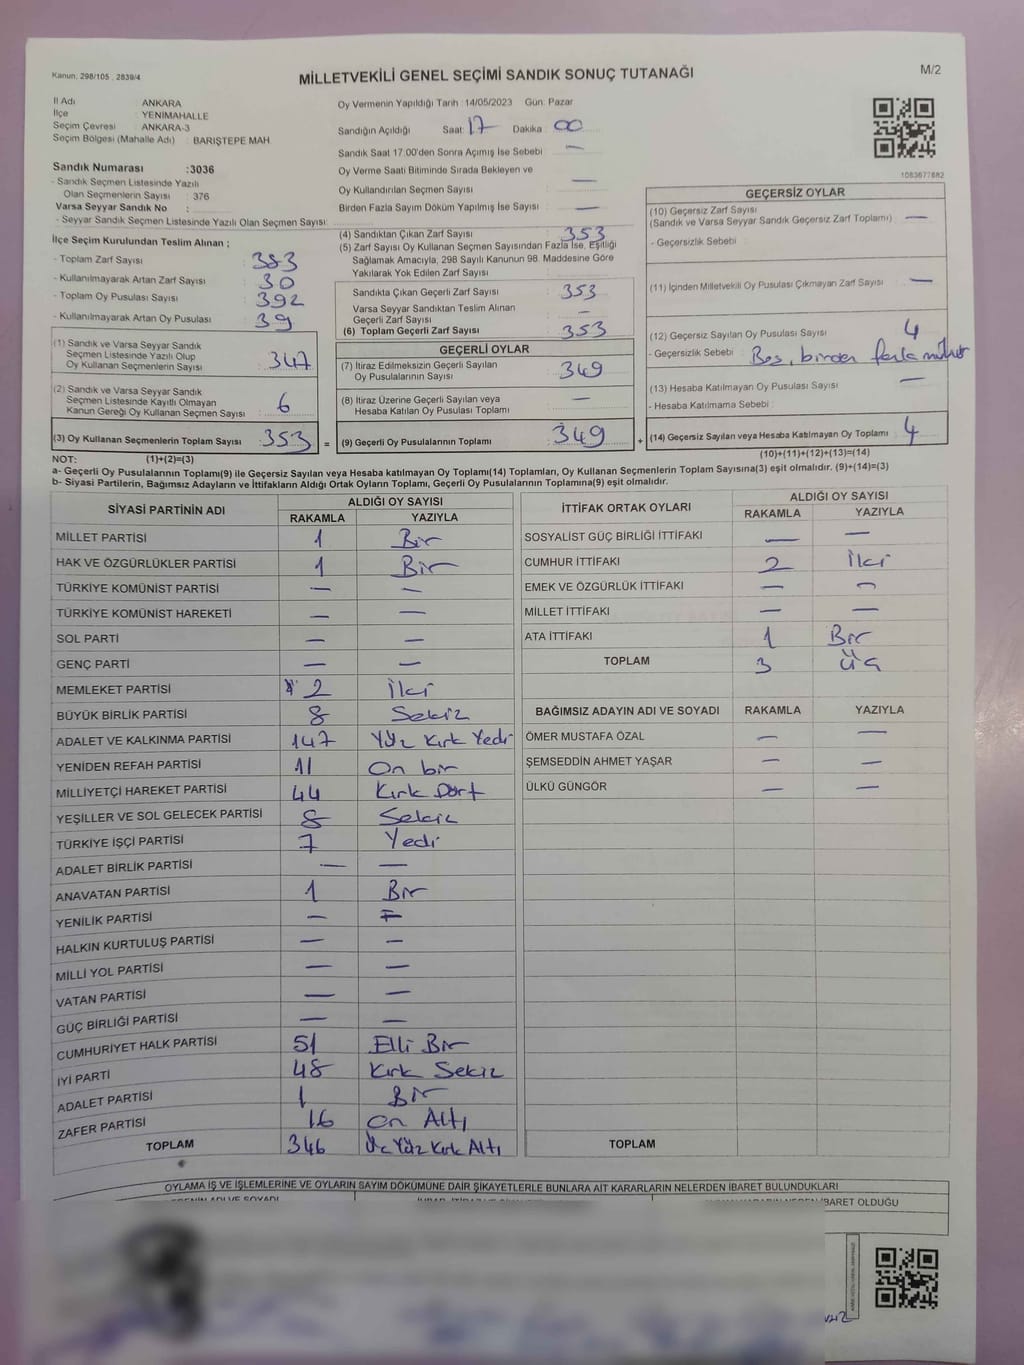 Kanun: 298/105 , 2839/4
MİLLETVEKİLİ GENEL SEÇİMİ SANDIK SONUÇ TUTANAĞI
M/2
İl Adı : ANKARA
İlçe : YENİMAHALLE
Seçim Çevresi : ANKARA-3
Seçim Bölgesi (Mahalle Adı) : BARIŞTEPE MAH
Sandık Numarası :3036
- Sandık Seçmen Listesinde Yazılı
Olan Seçmenlerin Sayısı : 376
Varsa Seyyar Sandık No :
- Seyyar Sandık Seçmen Listesinde Yazılı Olan Seçmen Sayısı:
Oy Vermenin Yapıldığı Tarih : 14/05/2023 Gün: Pazar
Sandığın Açıldığı Saat: 17 Dakika : 00
Sandık Saat 17:00'den Sonra Açımış İse Sebebi : —
Oy Verme Saati Bitiminde Sırada Bekleyen ve
Oy Kullandırılan Seçmen Sayısı : —
Birden Fazla Sayım Döküm Yapılmış İse Sayısı : —
1083677882
İlçe Seçim Kurulundan Teslim Alınan ;
- Toplam Zarf Sayısı : 383
- Kullanılmayarak Artan Zarf Sayısı : 30
- Toplam Oy Pusulası Sayısı : 392
- Kullanılmayarak Artan Oy Pusulası : 39
(1) Sandık ve Varsa Seyyar Sandık
Seçmen Listesinde Yazılı Olup
Oy Kullanan Seçmenlerin Sayısı : 347
(2) Sandık ve Varsa Seyyar Sandık
Seçmen Listesinde Kayıtlı Olmayan
Kanun Gereği Oy Kullanan Seçmen Sayısı : 6
(3) Oy Kullanan Seçmenlerin Toplam Sayısı : 353 =
(1)+(2)=(3)
(4) Sandıktan Çıkan Zarf Sayısı : 353
(5) Zarf Sayısı Oy Kullanan Seçmen Sayısından Fazla İse, Eşitliği
Sağlamak Amacıyla, 298 Sayılı Kanunun 98. Maddesine Göre
Yakılarak Yok Edilen Zarf Sayısı :
Sandıkta Çıkan Geçerli Zarf Sayısı : 353
Varsa Seyyar Sandıktan Teslim Alınan
Geçerli Zarf Sayısı : —
(6) Toplam Geçerli Zarf Sayısı : 353
GEÇERLİ OYLAR
(7) İtiraz Edilmeksizin Geçerli Sayılan
Oy Pusulalarının Sayısı : 349
(8) İtiraz Üzerine Geçerli Sayılan veya
Hesaba Katılan Oy Pusulası Toplamı : —
(9) Geçerli Oy Pusulalarının Toplamı : 349 +
GEÇERSİZ OYLAR
(10) Geçersiz Zarf Sayısı : —
(Sandık ve Varsa Seyyar Sandık Geçersiz Zarf Toplamı)
- Geçersizlik Sebebi :
(11) İçinden Milletvekili Oy Pusulası Çıkmayan Zarf Sayısı : —
(12) Geçersiz Sayılan Oy Pusulası Sayısı : 4
- Geçersizlik Sebebi : Boş, birden fazla mühür
(13) Hesaba Katılmayan Oy Pusulası Sayısı : —
- Hesaba Katılmama Sebebi :
(14) Geçersiz Sayılan veya Hesaba Katılmayan Oy Toplamı : 4
(10)+(11)+(12)+(13)=(14)
NOT:
a- Geçerli Oy Pusulalarının Toplamı(9) ile Geçersiz Sayılan veya Hesaba katılmayan Oy Toplamı(14) Toplamları, Oy Kullanan Seçmenlerin Toplam Sayısına(3) eşit olmalıdır. (9)+(14)=(3)
b- Siyasi Partilerin, Bağımsız Adayların ve İttifakların Aldığı Ortak Oyların Toplamı, Geçerli Oy Pusulalarının Toplamına(9) eşit olmalıdır.
SİYASİ PARTİNİN ADI ALDIĞI OY SAYISI
RAKAMLA YAZIYLA
MİLLET PARTİSİ 1 Bir
HAK VE ÖZGÜRLÜKLER PARTİSİ 1 Bir
TÜRKİYE KOMÜNİST PARTİSİ — —
TÜRKİYE KOMÜNİST HAREKETİ — —
SOL PARTİ — —
GENÇ PARTİ — —
MEMLEKET PARTİSİ 2 İki
BÜYÜK BİRLİK PARTİSİ 8 Sekiz
ADALET VE KALKINMA PARTİSİ 147 Yüz Kırk Yedi
YENİDEN REFAH PARTİSİ 11 On bir
MİLLİYETÇİ HAREKET PARTİSİ 44 Kırk Dört
YEŞİLLER VE SOL GELECEK PARTİSİ 8 Sekiz
TÜRKİYE İŞÇİ PARTİSİ 7 Yedi
ADALET BİRLİK PARTİSİ — —
ANAVATAN PARTİSİ 1 Bir
YENİLİK PARTİSİ — —
HALKIN KURTULUŞ PARTİSİ — —
MİLLİ YOL PARTİSİ — —
VATAN PARTİSİ — —
GÜÇ BİRLİĞİ PARTİSİ — —
CUMHURİYET HALK PARTİSİ 51 Elli Bir
İYİ PARTİ 48 Kırk Sekiz
ADALET PARTİSİ 1 Bir
ZAFER PARTİSİ 16 On Altı
TOPLAM 346 Üç Yüz Kırk Altı
İTTİFAK ORTAK OYLARI ALDIĞI OY SAYISI
RAKAMLA YAZIYLA
SOSYALİST GÜÇ BİRLİĞİ İTTİFAKI — —
CUMHUR İTTİFAKI 2 İki
EMEK VE ÖZGÜRLÜK İTTİFAKI — —
MİLLET İTTİFAKI — —
ATA İTTİFAKI 1 Bir
TOPLAM 3 Üç
BAĞIMSIZ ADAYIN ADI VE SOYADI RAKAMLA YAZIYLA
ÖMER MUSTAFA ÖZAL — —
ŞEMSEDDİN AHMET YAŞAR — —
ÜLKÜ GÜNGÖR — —
TOPLAM
OYLAMA İŞ VE İŞLEMLERİNE VE OYLARIN SAYIM DÖKÜMÜNE DAİR ŞİKAYETLERLE BUNLARA AİT KARARLARIN NELERDEN İBARET BULUNDUKLARI
İBARET OLDUĞU